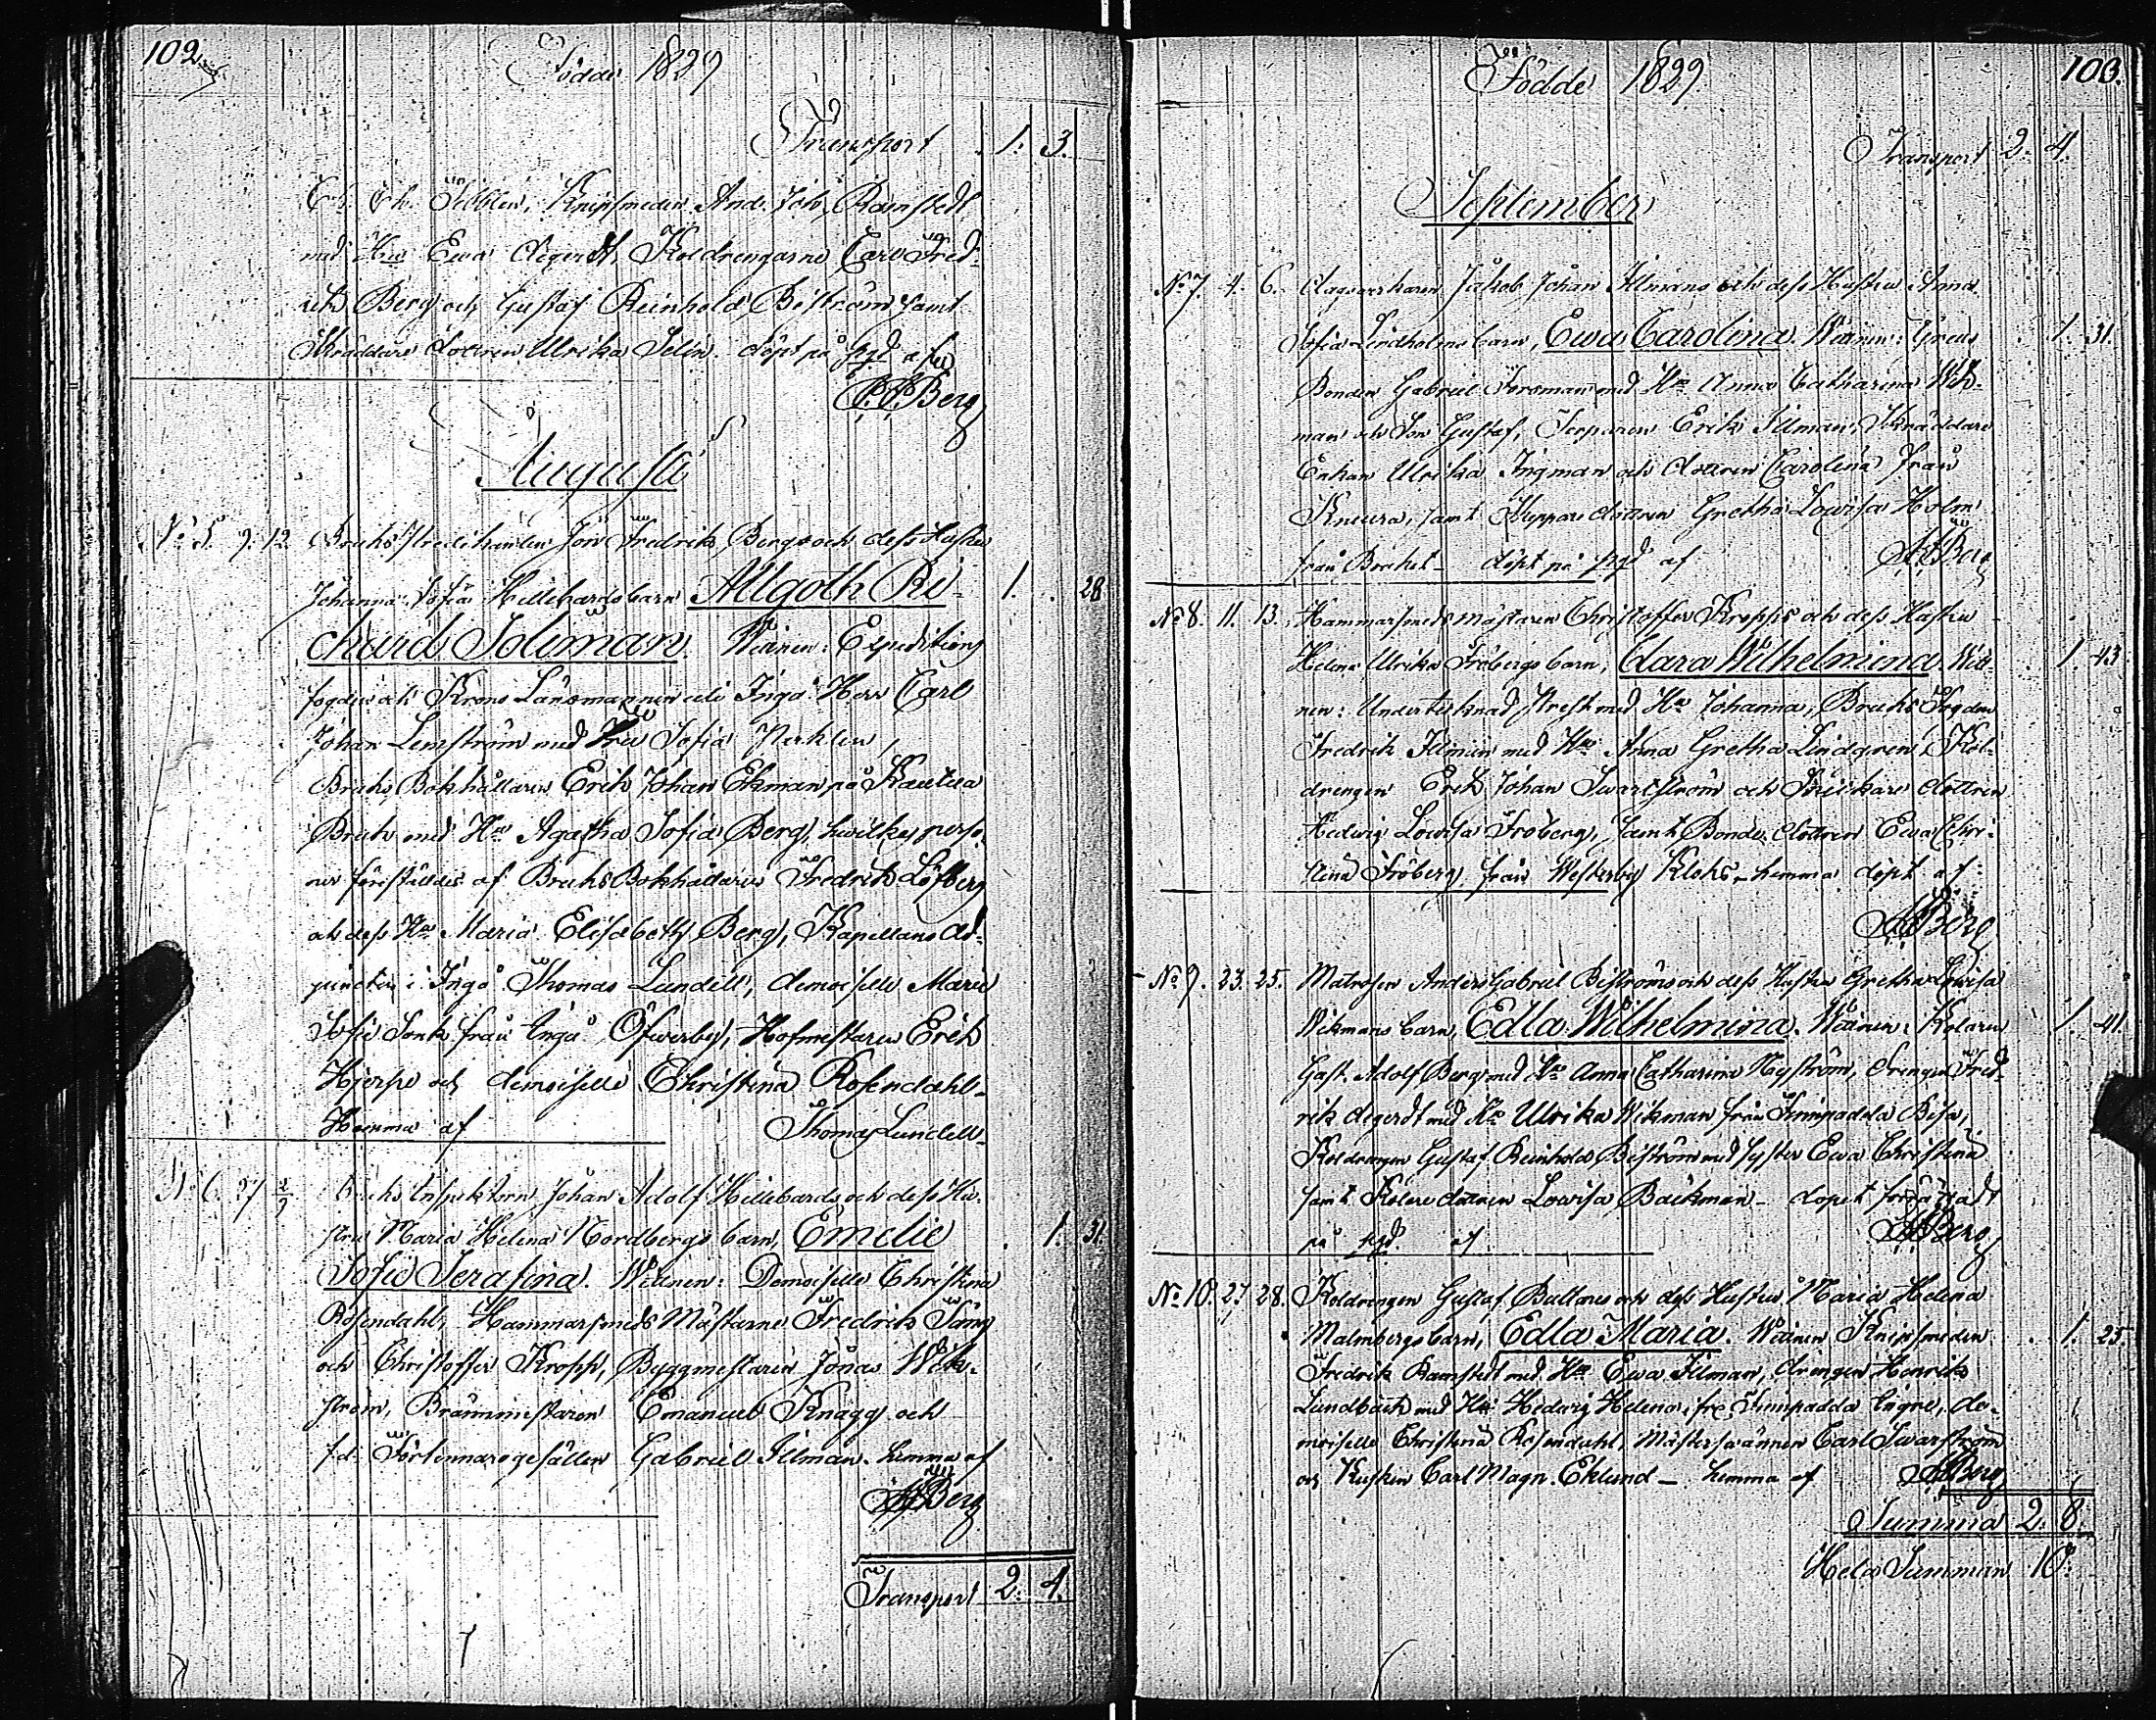 102.
Födde 1829
Transport 1. 3.
Knipsmeden And. Joh. Ramstedt
med Hu Ewa Degerdt, Koldrengarne Carl Fred-
rik Berg och Gustaf Reinhold Biström samt
Skräddare dottren Ulrika Selin. döpt på sgd af
Berg
Augusti
No 5. 9. 12. Bruks Predikanten Fredrik Bergs och dess Hustru
Johanna Sofia Hillebards barn Allgoth Ri- 1. 28
chard Soliman. Witnen: Expeditions
fogden och Krono Länsmannen uti Ingå Herr Carl
Johan Lemström med Fru Sofia
Bruks Bokhållaren Erik Johan Ekman på Kautua
Bruk med Hu Agatha Sofia Berg, hwilkas perso-
ner föreställdes af Bruks Bokhållaren Fredrik Löfberg
och dess Hu Maria Elisabeth Berg, Kapellans Ad-
juncten i Ingå Thomas Lundell, demoiselle Marie
Sofie Sonk från Ingå Öfwerby, Hofmestaren Erik
Hjerpe och demoiselle Christina Rosendahl-
Hemma af Thomas Lundell.
No 6. 27 Bruks Inspektorn Johan Adolf Hillebards och dess Hu-
stru Maria Helena Nordbergs barn, Emelie 1. 31
Sofie Serafina. Witnen: Demoiselle Christina
Rosendahl, Hammarsmeds Mästarne Fredrik
och Christoffer Kropp, Byggmestaren Jonas Wik-
ström, Brännmestaren Emanuel Knagg och
fd. Förtennaregesällen Gabriel Illman. hemma af
Berg
Transport 2. 4.
103.
Födde 1829
Transport 2. 4.
September
No 7. 4. 6. Jakob Johan Illmans och dess Hustru Anna
Sofia Lindholms barn, Ewa Carolina. Witnen: 1. 31.
Bonden Gabriel Forsman med Hu Anna Catharina Wik-
man och Son Gustaf, Torparen Erik Illman, Skräddare
Enkan Ulrika Ingman och dottren Carolina från
samt dottren Gretha Lowisa Holm
från Bruket - döpt på sgd af Berg
No 8. 11. 13. Hammarsmedsmästaren Christoffer Kropps och dess Hustru
Helena Ulrika Fröbergs barn, Clara Wilhelmina. Wit- 1. 43
nen: Undertecknad Prest med Hu Johanna, Bruks Fogden
Fredrik Illman med Hu Anna Gretha Lindgren, Kol-
drengen Erik Johan Swartström och Snickare dottren
Hedwig Lowisa Fröberg, samt Bonde dottren Ewa Chri-
stina Fröberg från Westerby Kloks - hemma döpt af:
Berg
No 9. 23. 25. Matrosen Anders Gabriel Biströms och dess Hustru Gretha Lowisa
Wikmans barn, Edla Wilhelmina. Witnen: Kolaren 1. 41.
Gust. Adolf Berg med Hu Anna Catharina Nyström, Drengen Fred-
rik degerdt med Hu Ulrika Wikman från Finnpadda Bisa,
Koldrengen Gustaf Reinhold Biström med syster Ewa Christina
samt Kolare dottren Lowisa Bäckman - döpt
på sgd. af Berg
No 10. 27. 28. Koldrengen Gustaf och dess Hustru Maria Helena
Malmbergs barn, Edla Maria. Witnen Knipsmeden 1. 25.
Fredrik Ramstedt med Hu Ewa Illman, drengen Henrik
Lundbäck med Hu Hedwig Helena, fr Finnpadda de-
moiselle Christina Rosendahl, Mästersvännen Carl Swarström
och Kusken Carl Magn. Eklund - hemma af Berg
Summa 2. 8.
Hela Summan 10.